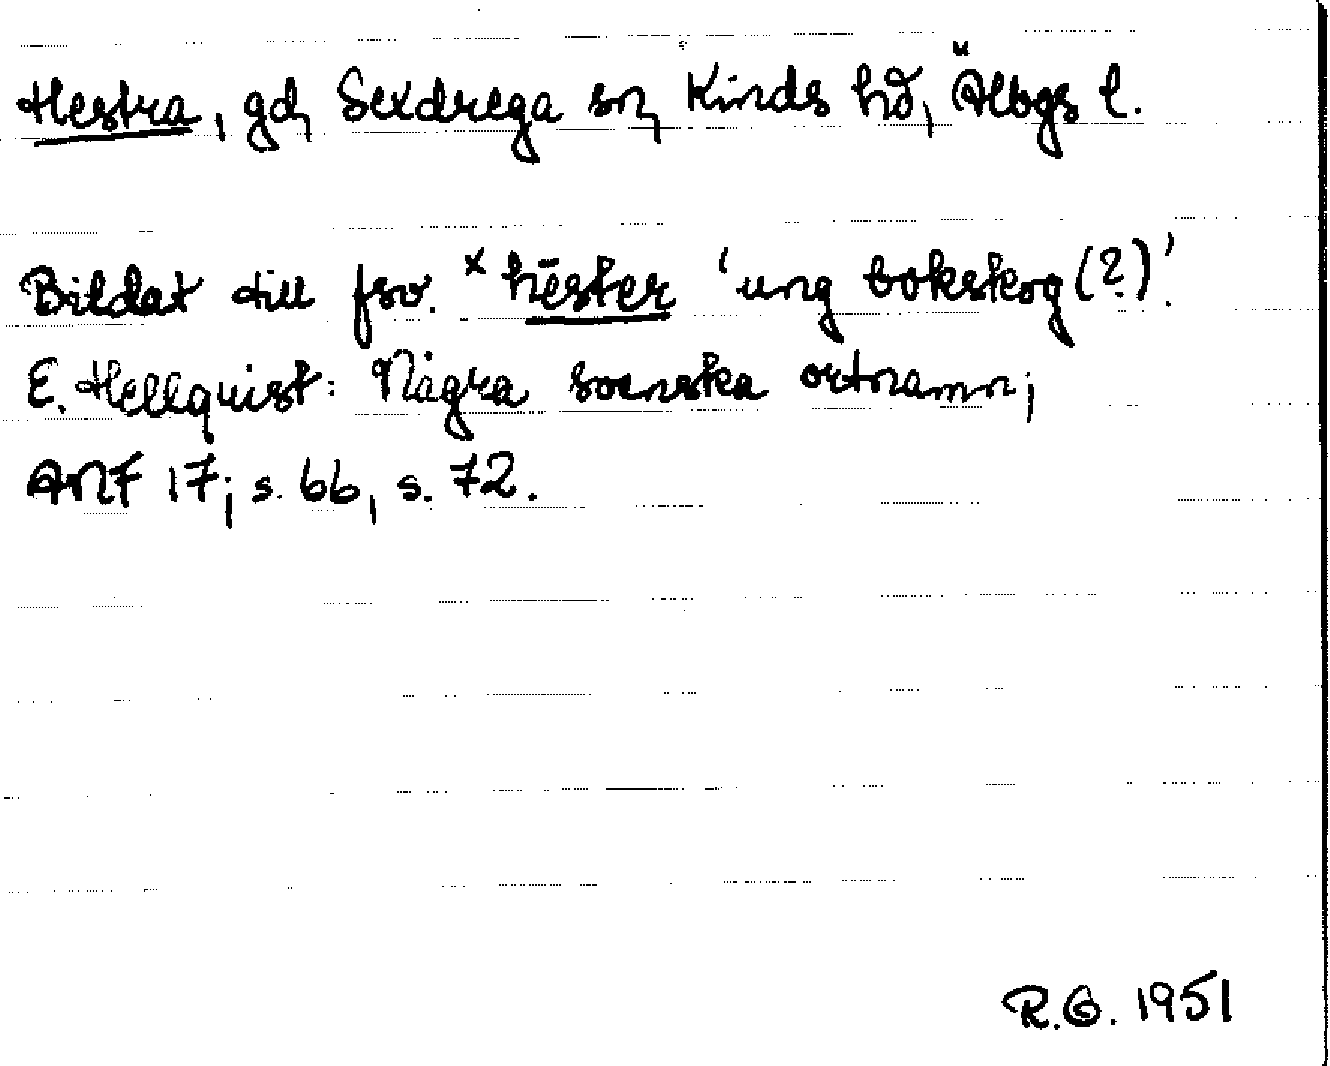 Hestra, gd, Sexdrega sn, Kinds hd, Älvbgs l.
Bildat till fsv. *hēster 'ung bokskog(?)'.
E. Hellquist: Några svenska ortnamn;
ANF 17; s. 66, s. 72.
R.G. 1951